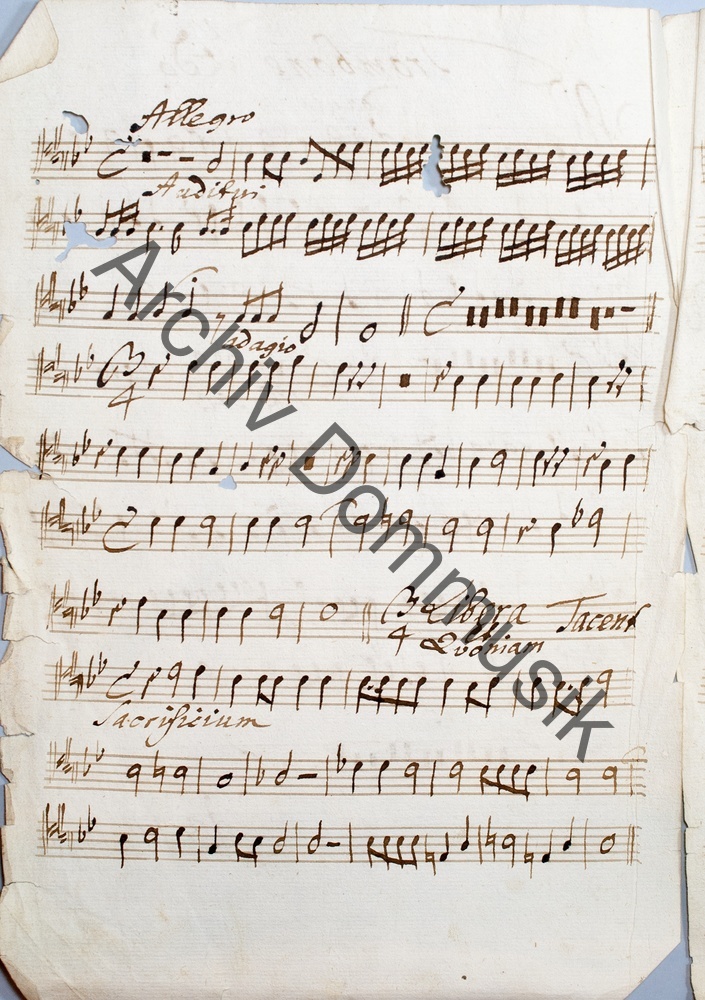 Allegro
Auditui
adagio
3
4
3 Libera Tacent
4 Quoniam
Sacrificium
Archiv Dommusik